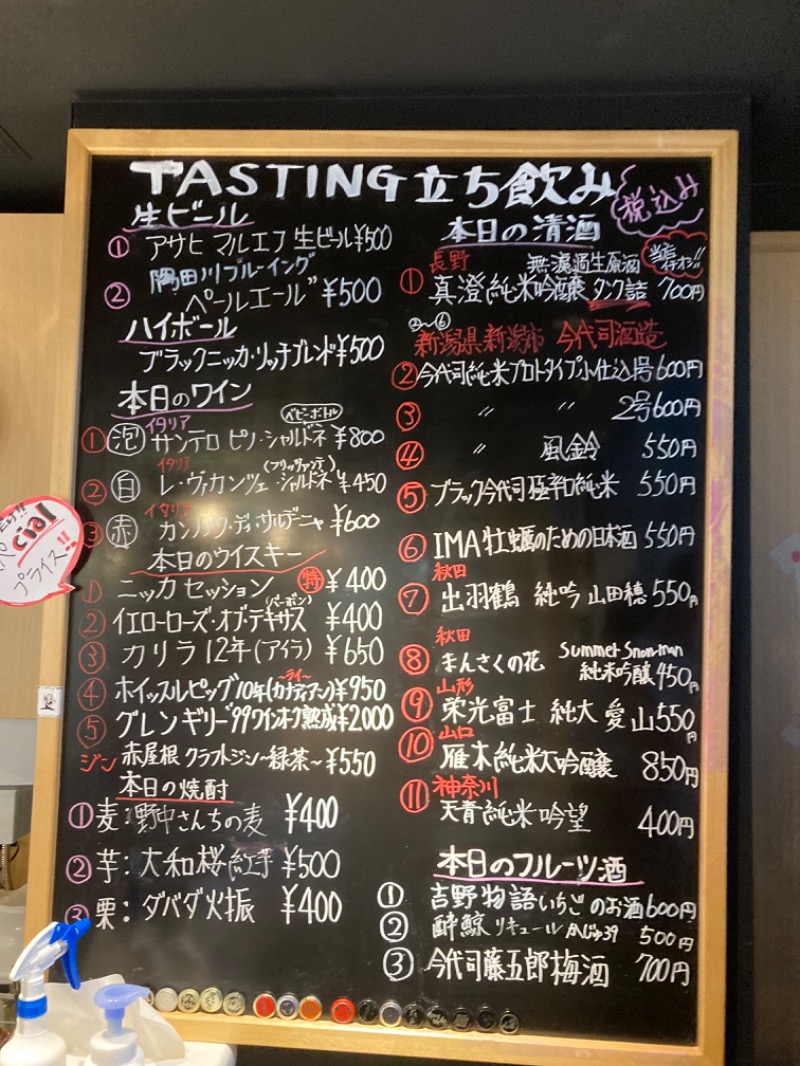 TASTING 立ち飲み
税込み
生ビール
① アサヒ マルエフ 生ビール ¥500
② 隅田川ブルーイング
ペールエール ¥500
ハイボール
ブラックニッカ・リッチブレンド ¥500
本日のワイン
ベビーボトル
イタリア
① 泡 サンテロ ピノ・シャルドネ ¥800
イタリア
(フリッツァンテ)
② 白 レ・ヴァカンツェ・シャルドネ ¥450
イタリア
③ 赤 カンノナウ・ディ・サルデーニャ ¥600
本日のウイスキー
① ニッカ セッション 特 ¥400
(バーボン)
② イエローローズ・オブ・テキサス ¥400
③ カリラ 12年(アイラ) ¥650
~ライ~
④ ホイッスルピッグ10年(カナディアン) ¥950
⑤ グレンギリー'99ワインオク熟成 ¥2000
ジン 赤屋根 クラフトジン~緑茶~ ¥550
本日の焼酎
① 麦: 野中さんちの麦 ¥400
② 芋: 大和桜 紅芋 ¥500
③ 栗: ダバダ火振 ¥400
本日の清酒
長野 無濾過生原酒 当店イチオシ!!
① 真澄 純米吟醸 タンク詰 700円
②~⑥
新潟県新潟市 今代司酒造
② 今代司純米プロトタイプ小仕込1号 600円
③ 〃 〃 2号 600円
④ 〃 風鈴 550円
⑤ ブラック今代司 極辛口純米 550円
⑥ IMA 牡蠣のための日本酒 550円
秋田
⑦ 出羽鶴 純吟 山田穂 550円
秋田
⑧ まんさくの花 Summer Snowman
純米吟醸 450円
山形
⑨ 栄光冨士 純大 愛山 550円
山口
⑩ 雁木 純米大吟醸 850円
神奈川
⑪ 天青 純米 吟望 400円
本日のフルーツ酒
① 吉野物語 いちごのお酒 600円
② 酔鯨 リキュール かじゅ39 500円
③ 今代司 藤五郎梅酒 700円
プライス!!